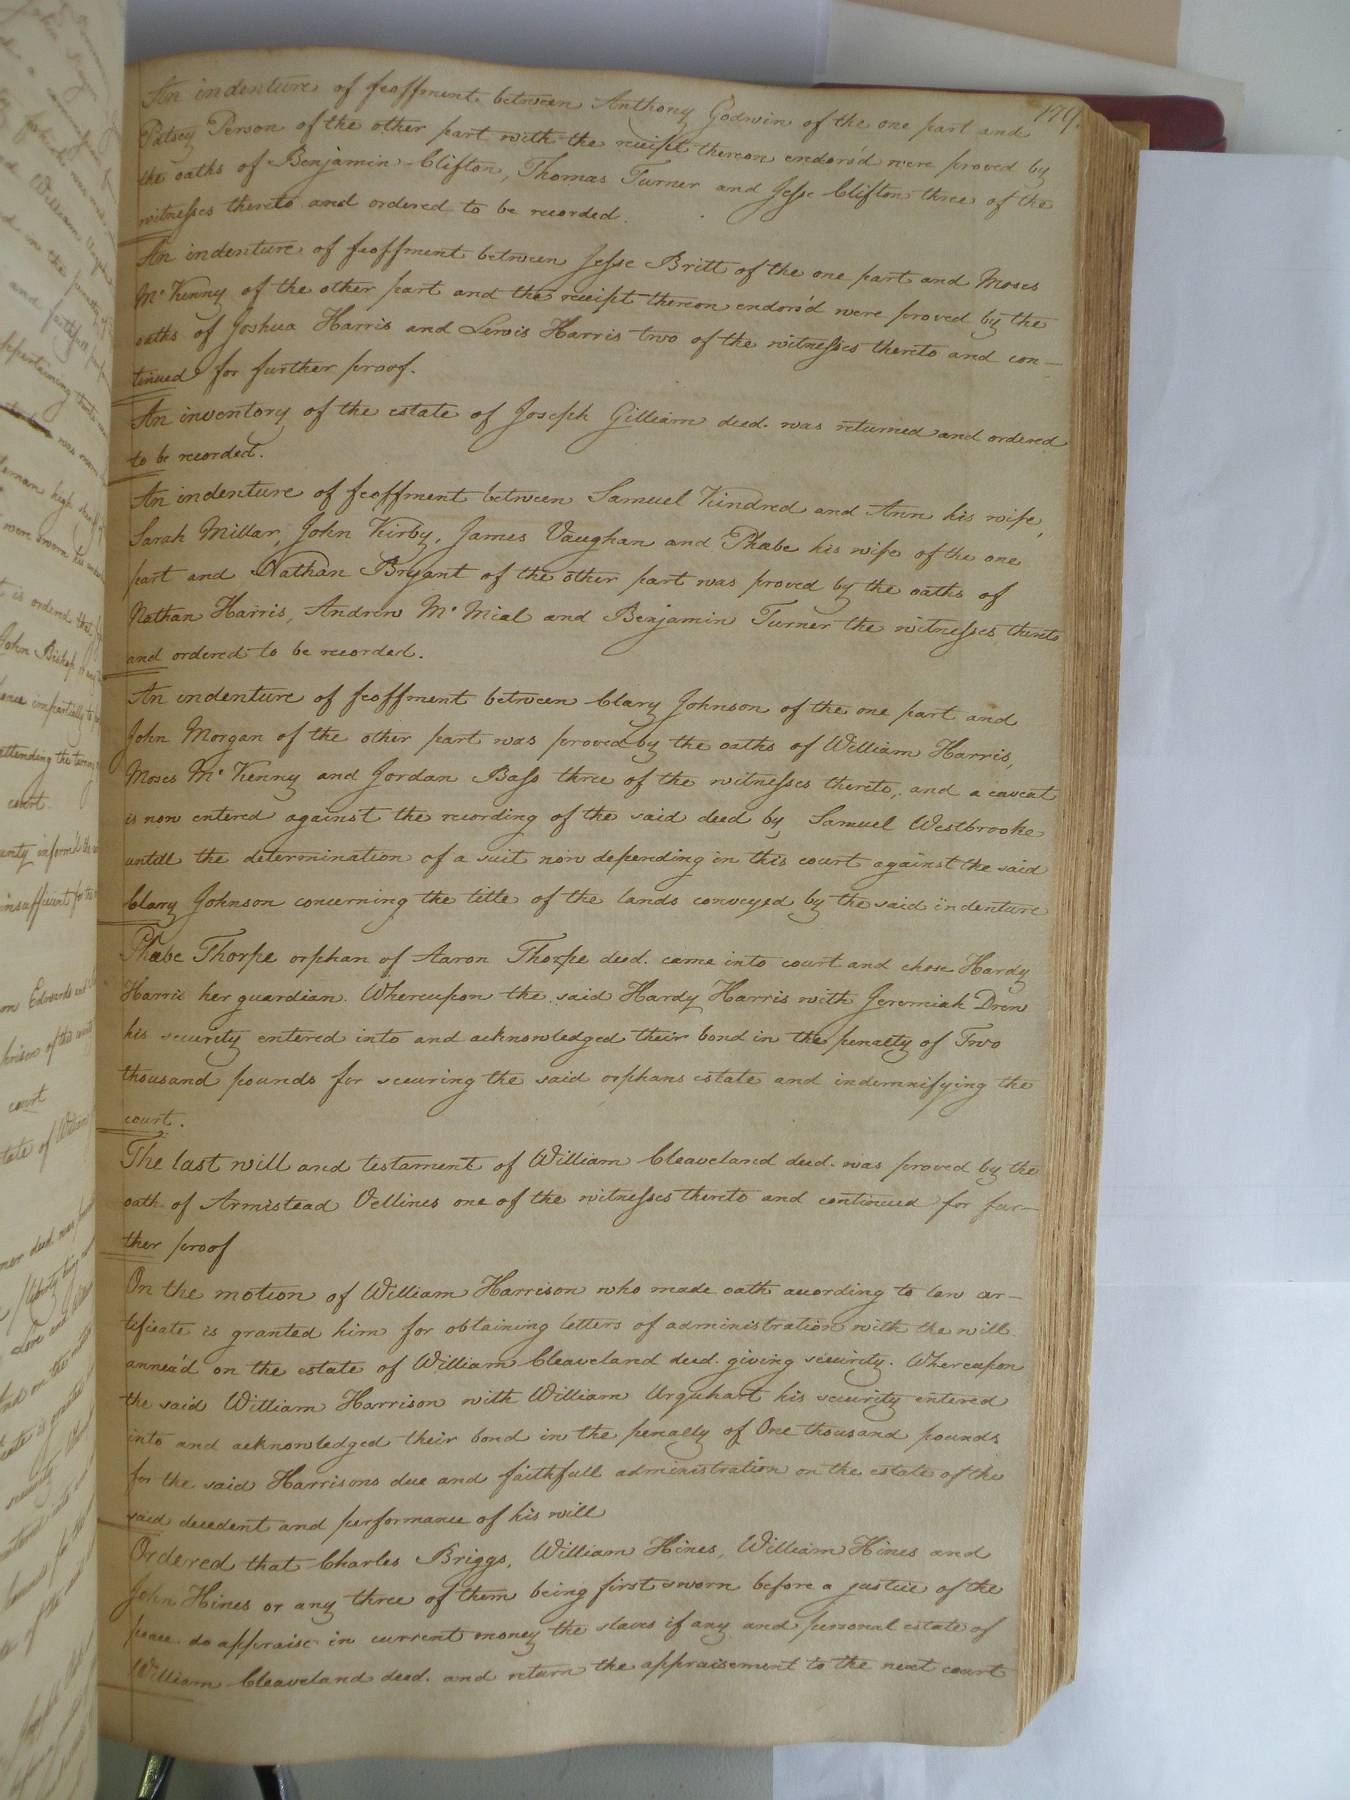 179.
An indenture of feoffment between Anthony Godwin of the one part and
Patsey Person of the other part with the receipt thereon endors'd were proved by
the oaths of Benjamin Clifton, Thomas Turner and Jesse Clifton three of the
witnesses thereto and ordered to be recorded.
An indenture of feoffment between Jesse Britt of the one part and Moses
Mc Kenny of the other part and the receipt thereon endors'd were proved by the
oaths of Joshua Harris and Lewis Harris two of the witnesses thereto and con-
tinued for further proof.
An inventory of the estate of Joseph Gilliam deed. was returned and ordered
to be recorded.
An indenture of feoffment between Samuel Kindred and Ann his wife,
Sarah Millar, John Kirby, James Vaughan and Phæbe his wife of the one
part and Nathan Bryant of the other part was proved by the oaths of
Nathan Harris, Andrew Mc Mial and Benjamin Turner the witnesses thereto
and ordered to be recorded.
An indenture of feoffment between Clary Johnson of the one part and
John Morgan of the other part was proved by the oaths of William Harris,
Moses Mc Kenny and Jordan Bass three of the witnesses thereto, and a caveat
is now entered against the recording of the said deed by Samuel Westbrooke
untill the determination of a suit now depending in this court against the said
Clary Johnson concerning the title of the lands conveyed by the said indenture
Phæbe Thorpe orphan of Aaron Thorpe deed. came into court and chose Hardy
Harris her guardian. Whereupon the said Hardy Harris with Jeremiah Drew
his security entered into and acknowledged their bond in the penalty of Two
thousand pounds for securing the said orphans estate and indemnifying the
court.
The last will and testament of William Cleaveland deed. was proved by the
oath of Armistead Vellines one of the witnesses thereto and continued for fur-
ther proof
On the motion of William Harrison who made oath according to law cer-
tificate is granted him for obtaining letters of administration with the will
annex'd on the estate of William Cleaveland deed. giving security. Whereupon
the said William Harrison with William Urquhart his security entered
into and acknowledged their bond in the penalty of One thousand pounds
for the said Harrisons due and faithfull administration on the estate of the
said decedent and performance of his will
Ordered that Charles Briggs, William Hines, William Hines and
John Hines or any three of them being first sworn before a justice of the
peace do appraise in current money the slaves if any and personal estate of
William Cleaveland deed. and return the appraisement to the next court